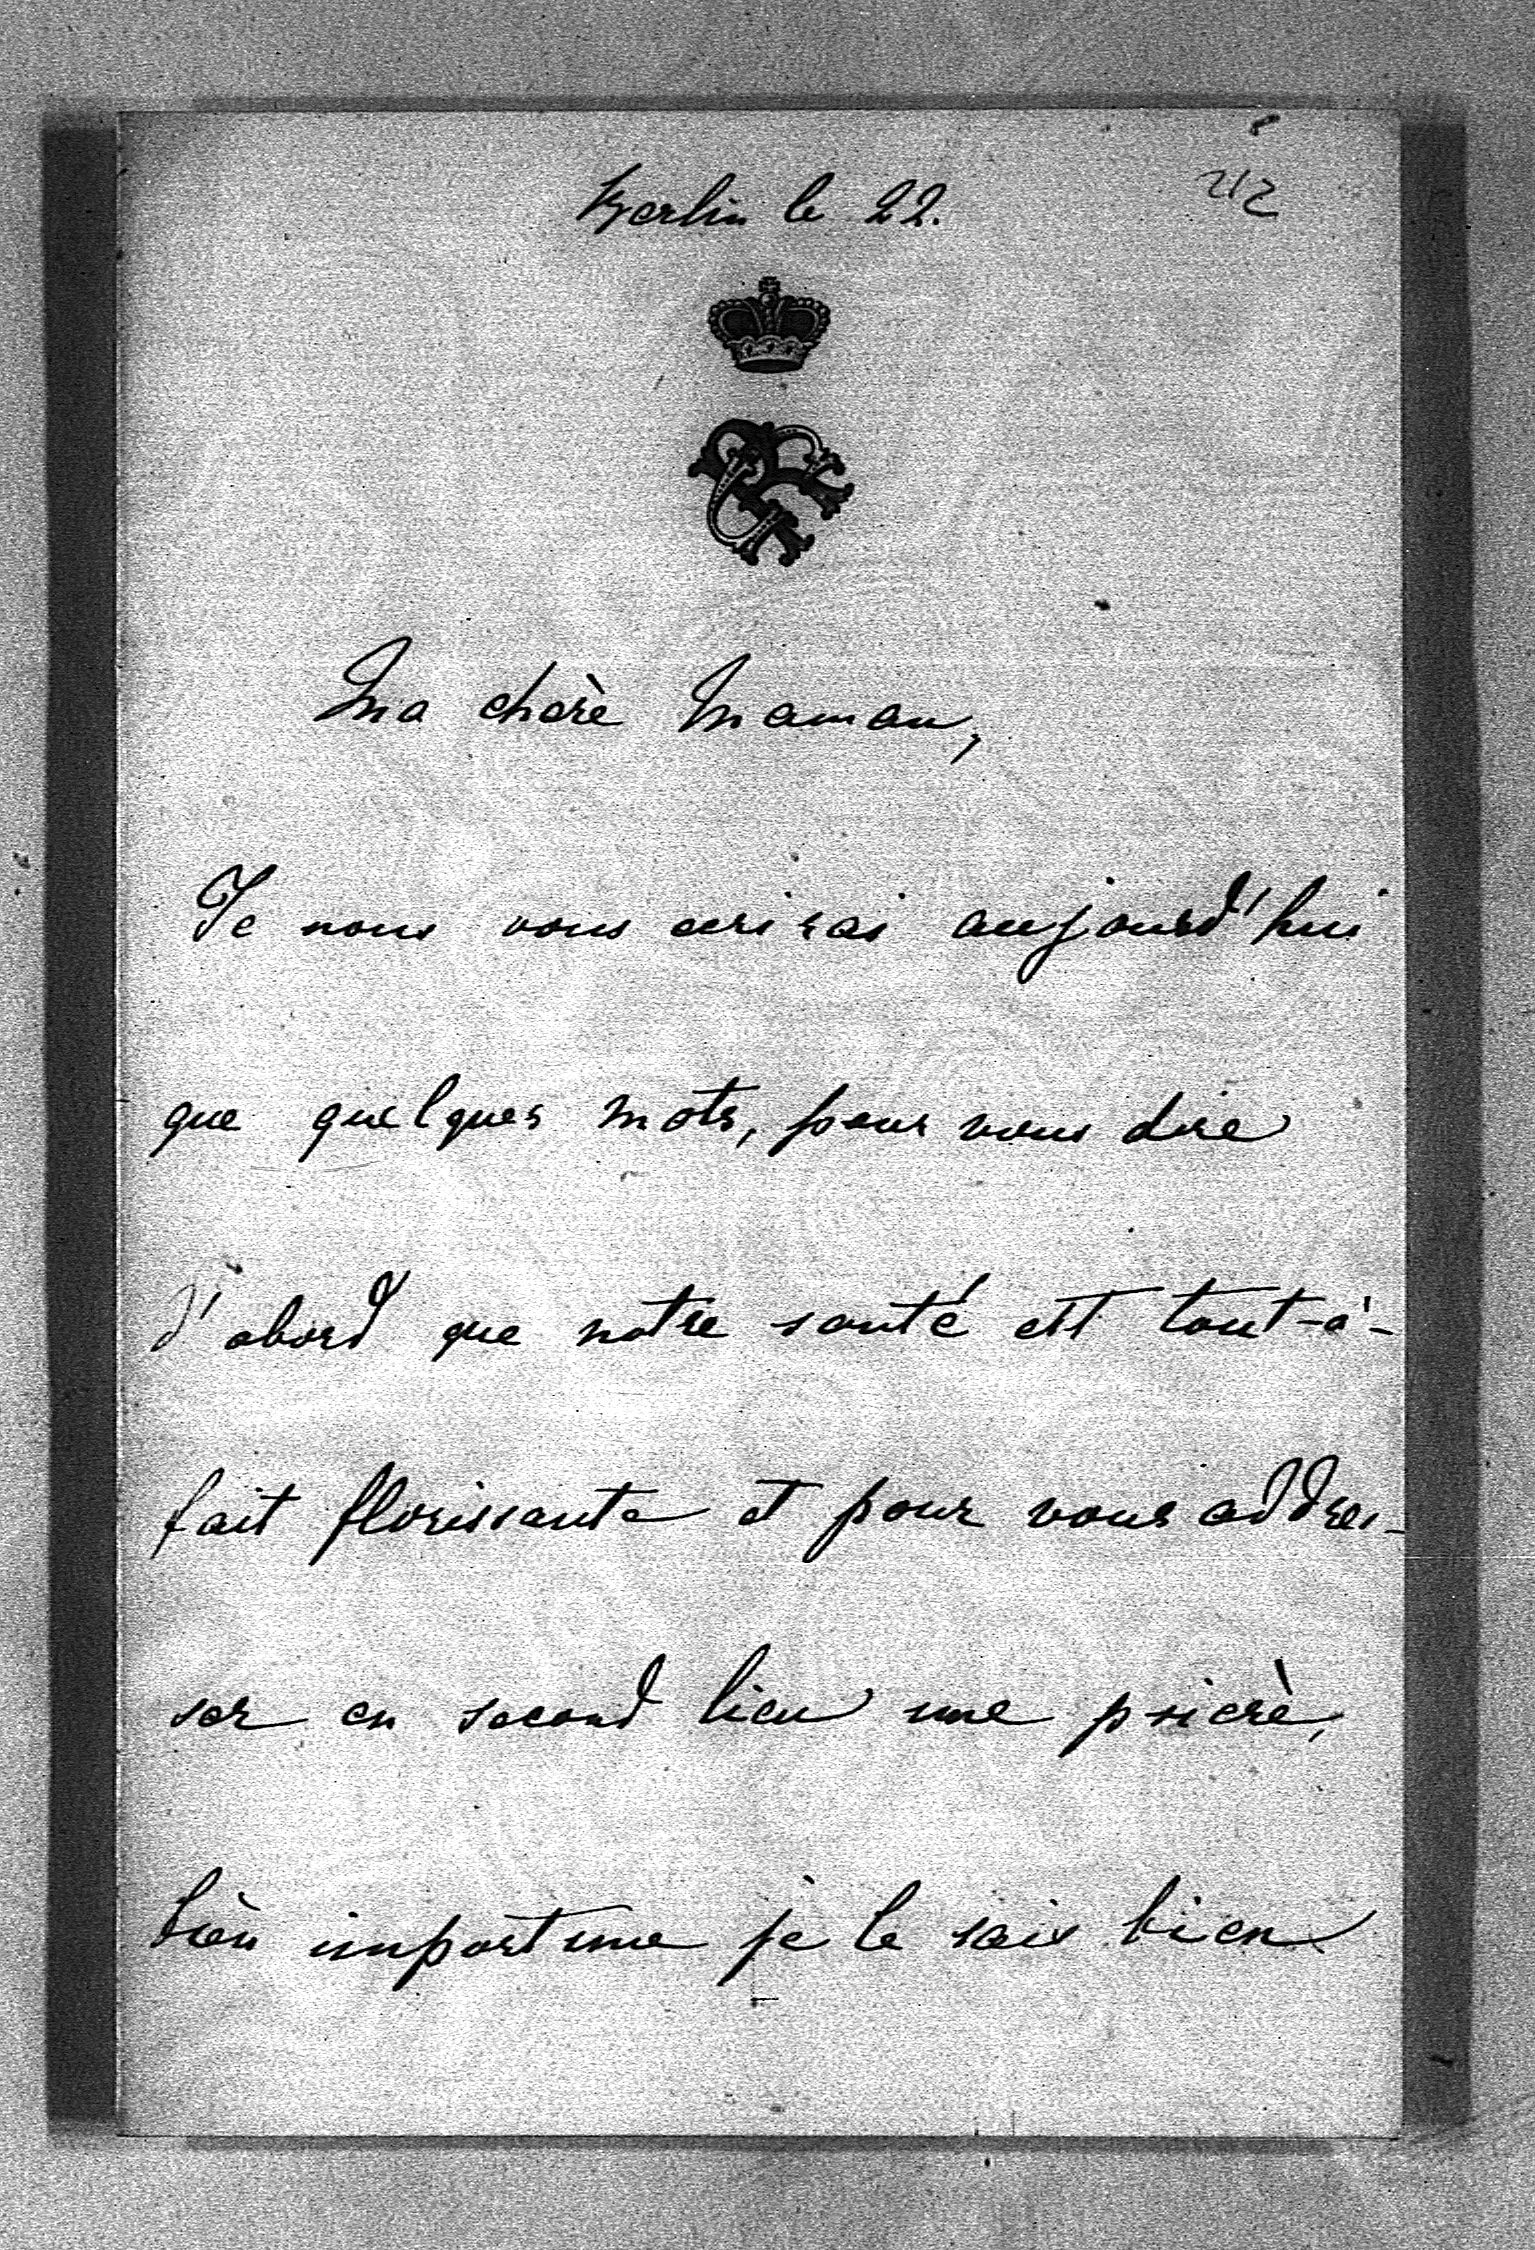 Berlin le 22.
212
Ma cherè Maman,
Je nous vous ecrirai aujourd'hui
que quelques mots, pour vous dire
d'abord que notre santé est tout-à-
fait florissante et pour vous addres-
ser en second lieu une prierè,
bien importune je le sais bien